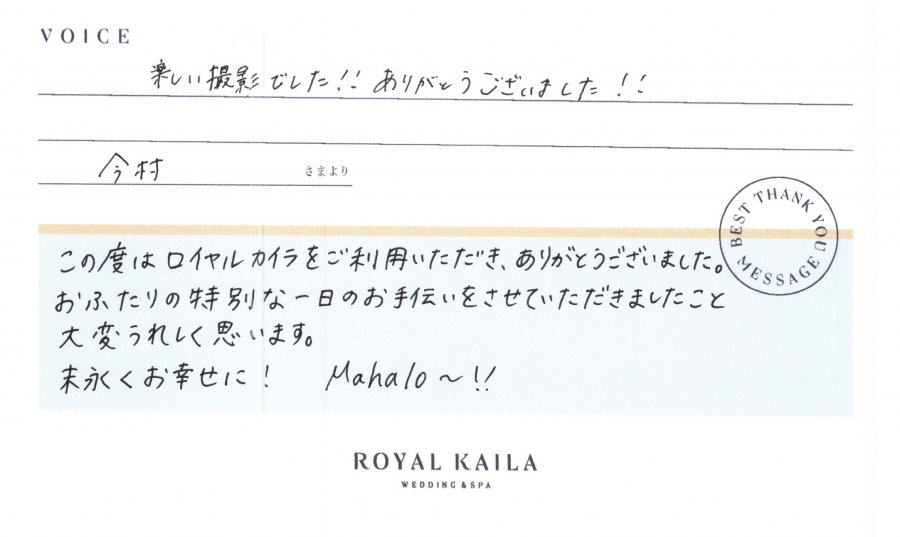 VOICE
楽しい撮影でした!! ありがとうございました!!
今村 さまより
BEST THANK YOU MESSAGE
この度はロイヤルカイラをご利用いただき、ありがとうございました。
おふたりの特別な一日のお手伝いをさせていただきましたこと
大変うれしく思います。
末永くお幸せに! Mahalo~!!
ROYAL KAILA
WEDDING & SPA